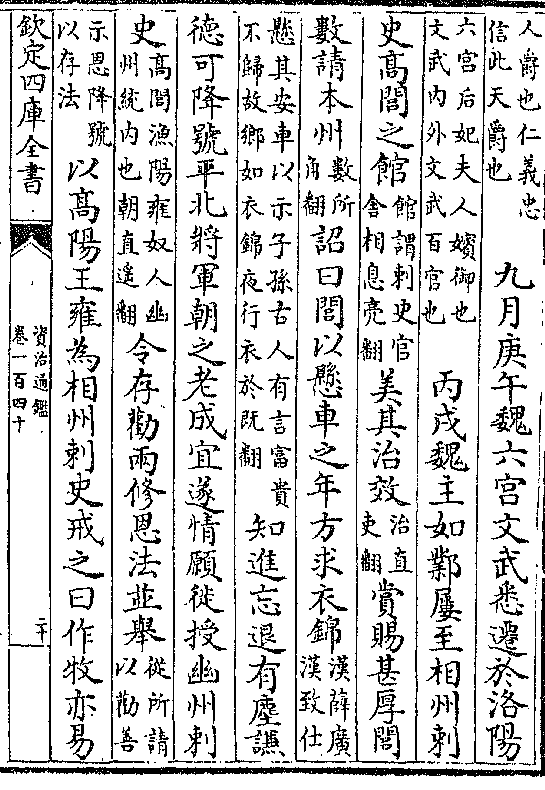 人爵也仁義忠
信此天爵也
九月庚午魏六宫文武悉遷於洛陽
六宫后妃夫人嬪御也
文武内外文武百官也
丙戌魏主如鄴屢至相州刺
史高閭之館
館謂刺史官
舍相息亮翻
美其治效
治直
吏翻
賞賜甚厚閭
數請本州
數所
角翻
詔曰閭以懸車之年方求衣錦
漢薛廣
漢致仕
懸其安車以示子孫古人有言富貴
不歸故鄉如衣錦夜行衣於既翻
知進忘退有塵謙
德可降號平北將軍朝之老成宜遂情願徙授幽州刺
史
高閭漁陽雍奴人幽
州統内也朝直遥翻
令存勸兩修恩法並舉
從所請
以勸善
示恩降號
以存法
以高陽王雍為相州刺史戒之曰作牧亦易
欽定四庫全書
資治通鑑
卷一百四十
二十